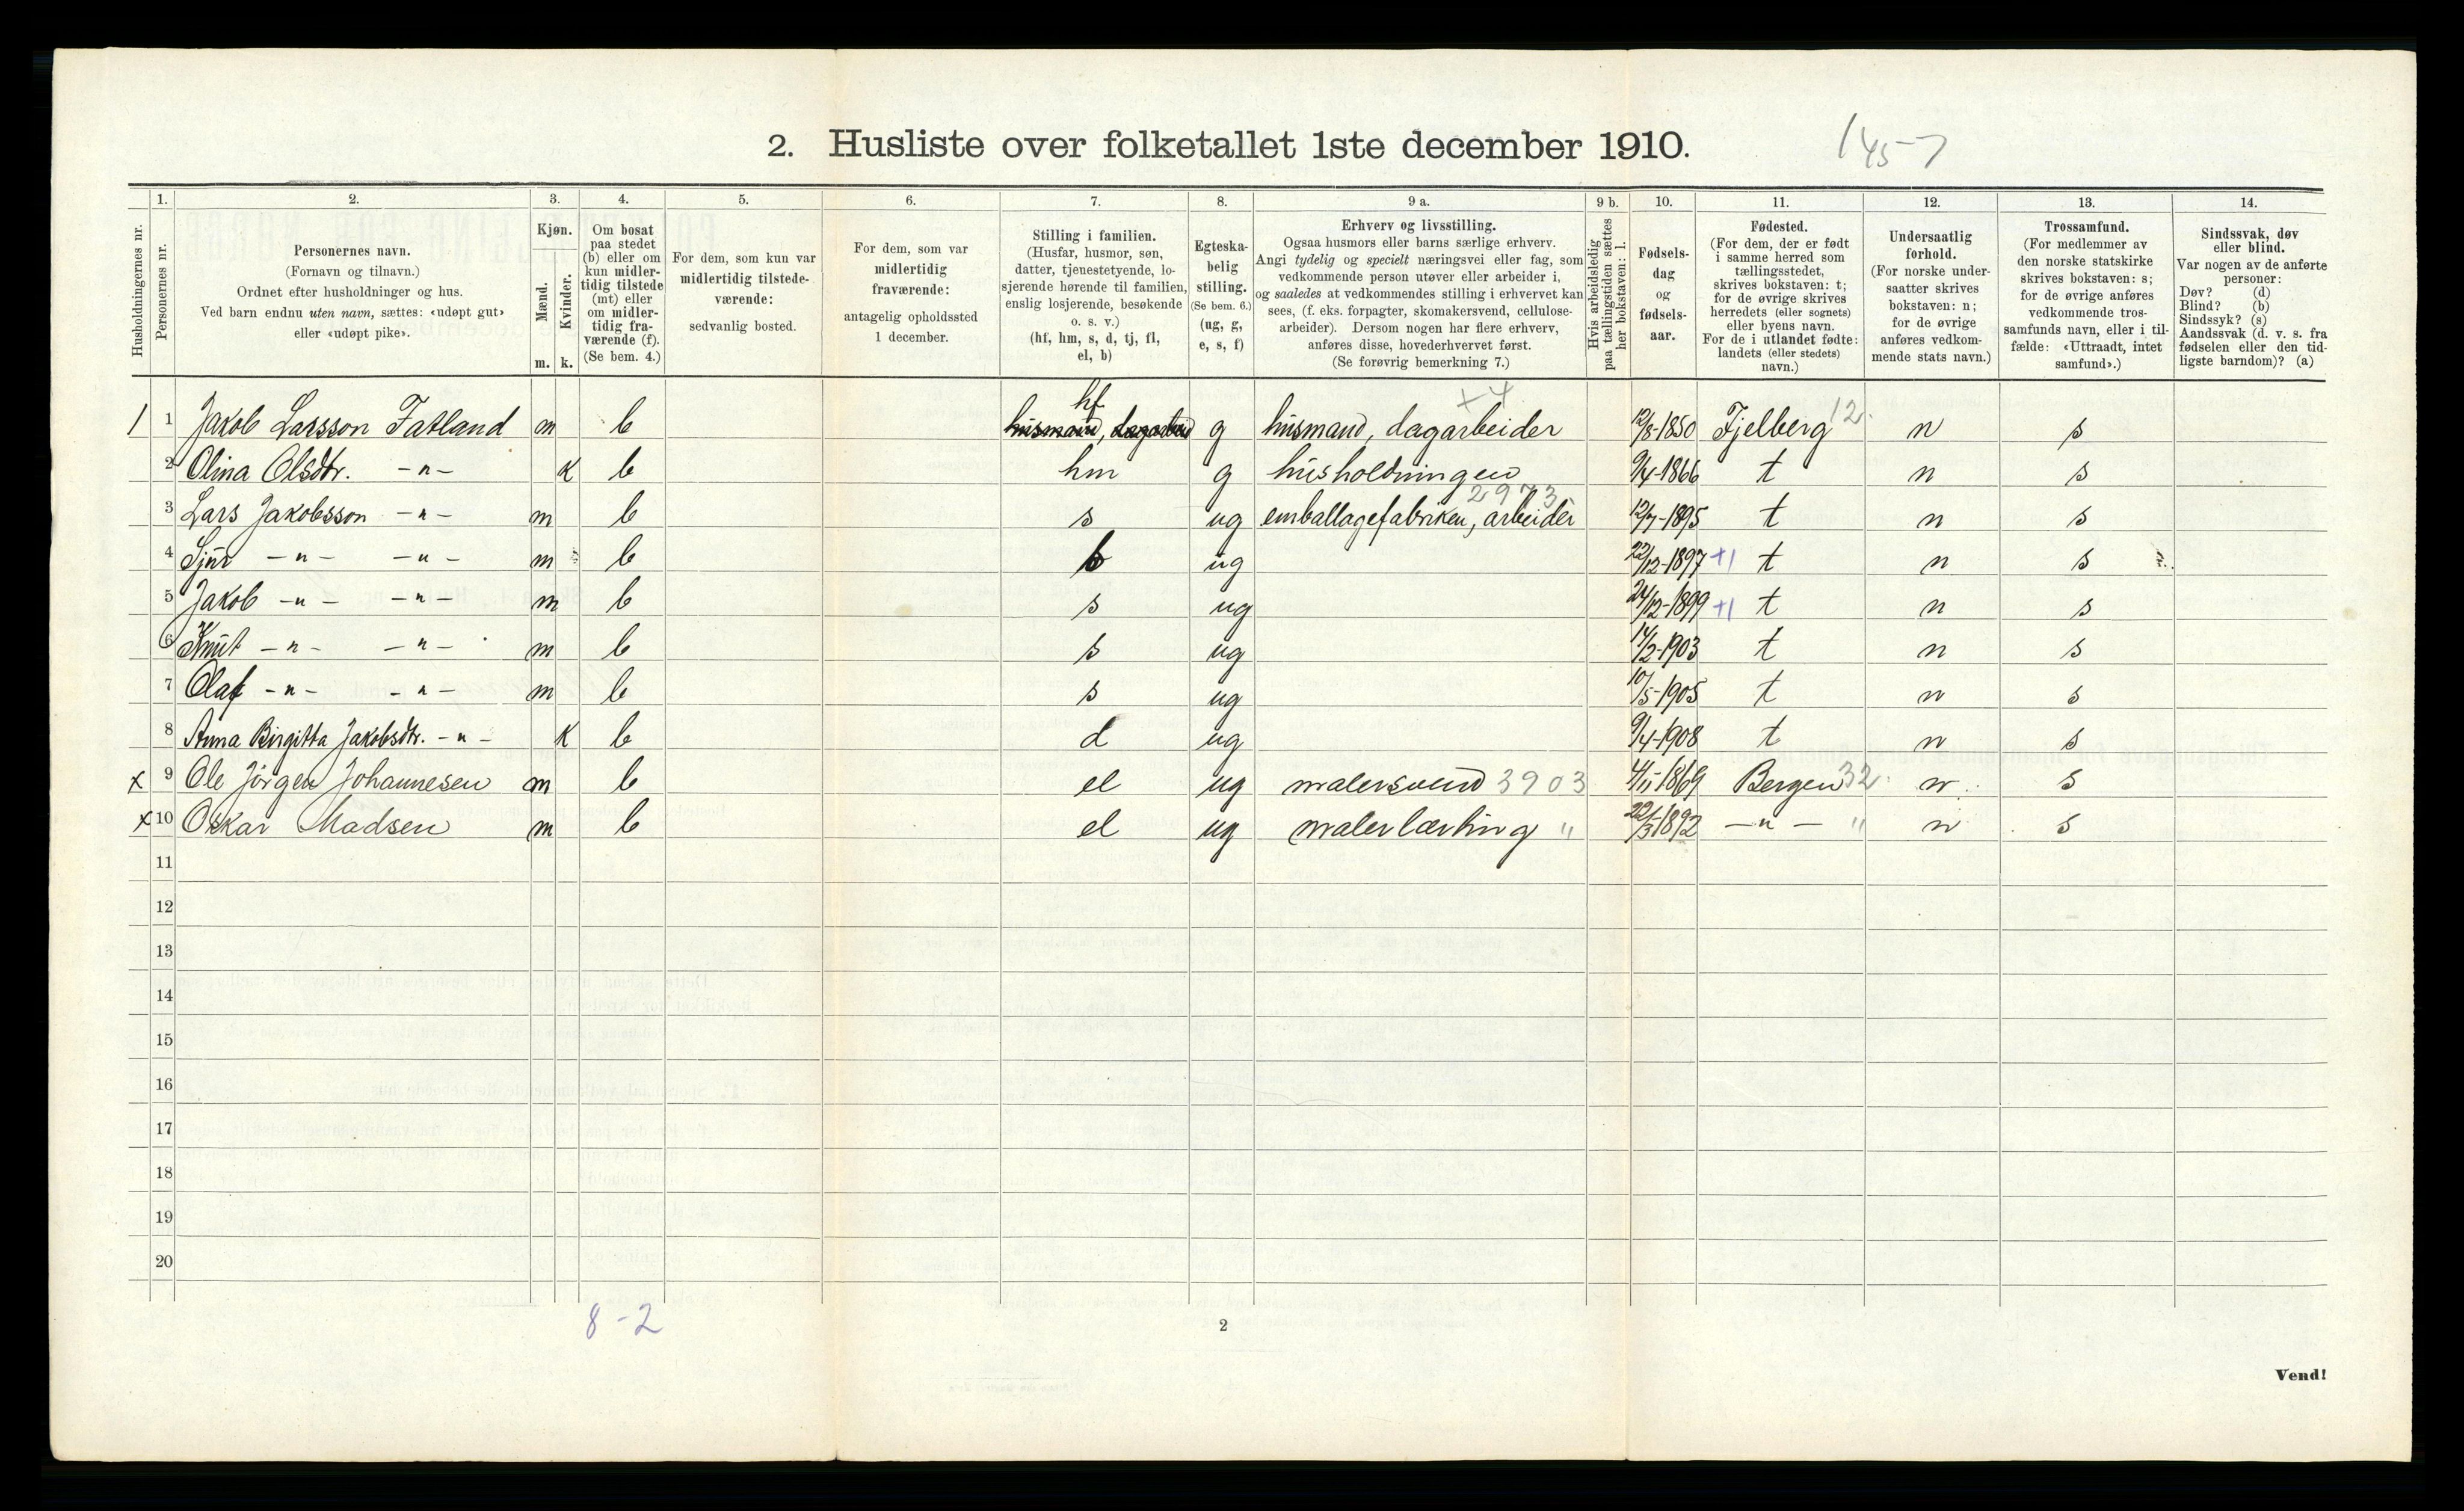 2. Husliste over folketallet 1ste december 1910.
1. 2. 3. 4. 5. 6. 7. 8. 9 a. 9 b. 10. 11. 12. 13. 14.
Husholdningernes nr.
Personernes nr.
Personernes navn.
(Fornavn og tilnavn.)
Ordnet efter husholdninger og hus.
Ved barn endnu uten navn, sættes: «udøpt gut»
eller «udøpt pike».
Kjøn.
Mænd.
Kvinder.
m. k.
Om bosat
paa stedet
(b) eller om
kun midler-
tidig tilstede
(mt) eller
om midler-
tidig fra-
værende (f).
(Se bem. 4.)
For dem, som kun var
midlertidig tilstede-
værende:
sedvanlig bosted.
For dem, som var
midlertidig
fraværende:
antagelig opholdssted
1 december.
Stilling i familien.
(Husfar, husmor, søn,
datter, tjenestetyende, lo-
sjerende hørende til familien,
enslig losjerende, besøkende
o. s. v.)
(hf, hm, s, d, tj, fl,
el, b)
Egteska-
belig
stilling.
(Se bem. 6.)
(ug, g,
e, s, f)
Erhverv og livsstilling.
Ogsaa husmors eller barns særlige erhverv.
Angi tydelig og specielt næringsvei eller fag, som
vedkommende person utøver eller arbeider i,
og saaledes at vedkommendes stilling i erhvervet kan
sees, (f. eks. forpagter, skomakersvend, cellulose-
arbeider). Dersom nogen har flere erhverv,
anføres disse, hovederhvervet først.
(Se forøvrig bemerkning 7.)
Hvis arbeidsledig
paa tællingstiden sættes
her bokstaven: l.
Fødsels-
dag
og
fødsels-
aar.
Fødested.
(For dem, der er født
i samme herred som
tællingsstedet,
skrives bokstaven: t;
for de øvrige skrives
herredets (eller sognets)
eller byens navn.
For de i utlandet fødte:
landets (eller stedets)
navn.)
Undersaatlig
forhold.
(For norske under-
saatter skrives
bokstaven: n;
for de øvrige
anføres vedkom-
mende stats navn.)
Trossamfund.
(For medlemmer av
den norske statskirke
skrives bokstaven: s;
for de øvrige anføres
vedkommende tros-
samfunds navn, eller i til-
fælde: «Uttraadt, intet
samfund».)
Sindssvak, døv
eller blind.
Var nogen av de anførte
personer:
Døv? (d)
Blind? (b)
Sindssyk? (s)
Aandssvak (d. v. s. fra
fødselen eller den tid-
ligste barndom)? (a)
hf +4
1 1 Jakob Larsson Fatland m b husmand, g husmand, dagarbeider 12/8-1850 Fjelberg 12 n s
2 Olina Olsdtr. -"- k b hm g husholdningen 9/4-1866 t n s
2973
3 Lars Jakobsson -"- m b s ug emballagefabriken, arbeider 12/7-1895 t n s
4 Sjur -"- -"- m b s ug 22/12-1897 +1 t n s
5 Jakob -"- -"- m b s ug 24/12-1899 +1 t n s
6 Knut -"- -"- m b s ug 14/2-1903 t n s
7 Olaf -"- -"- m b s ug 10/5-1905 t n s
8 Anna Birgitta Jakobsdtr. -"- k b d ug 9/4-1908 t n s
x 9 Ole Jörgen Johannesen m b el ug malersvend 3903 4/11 1869 Bergen 32 n s
x 10 Oskar Madsen m b el ug malerlærling " 22/3 1892 -"- " n s
11
12
13
14
15
16
17
18
19
20
8-2
2
Vend!